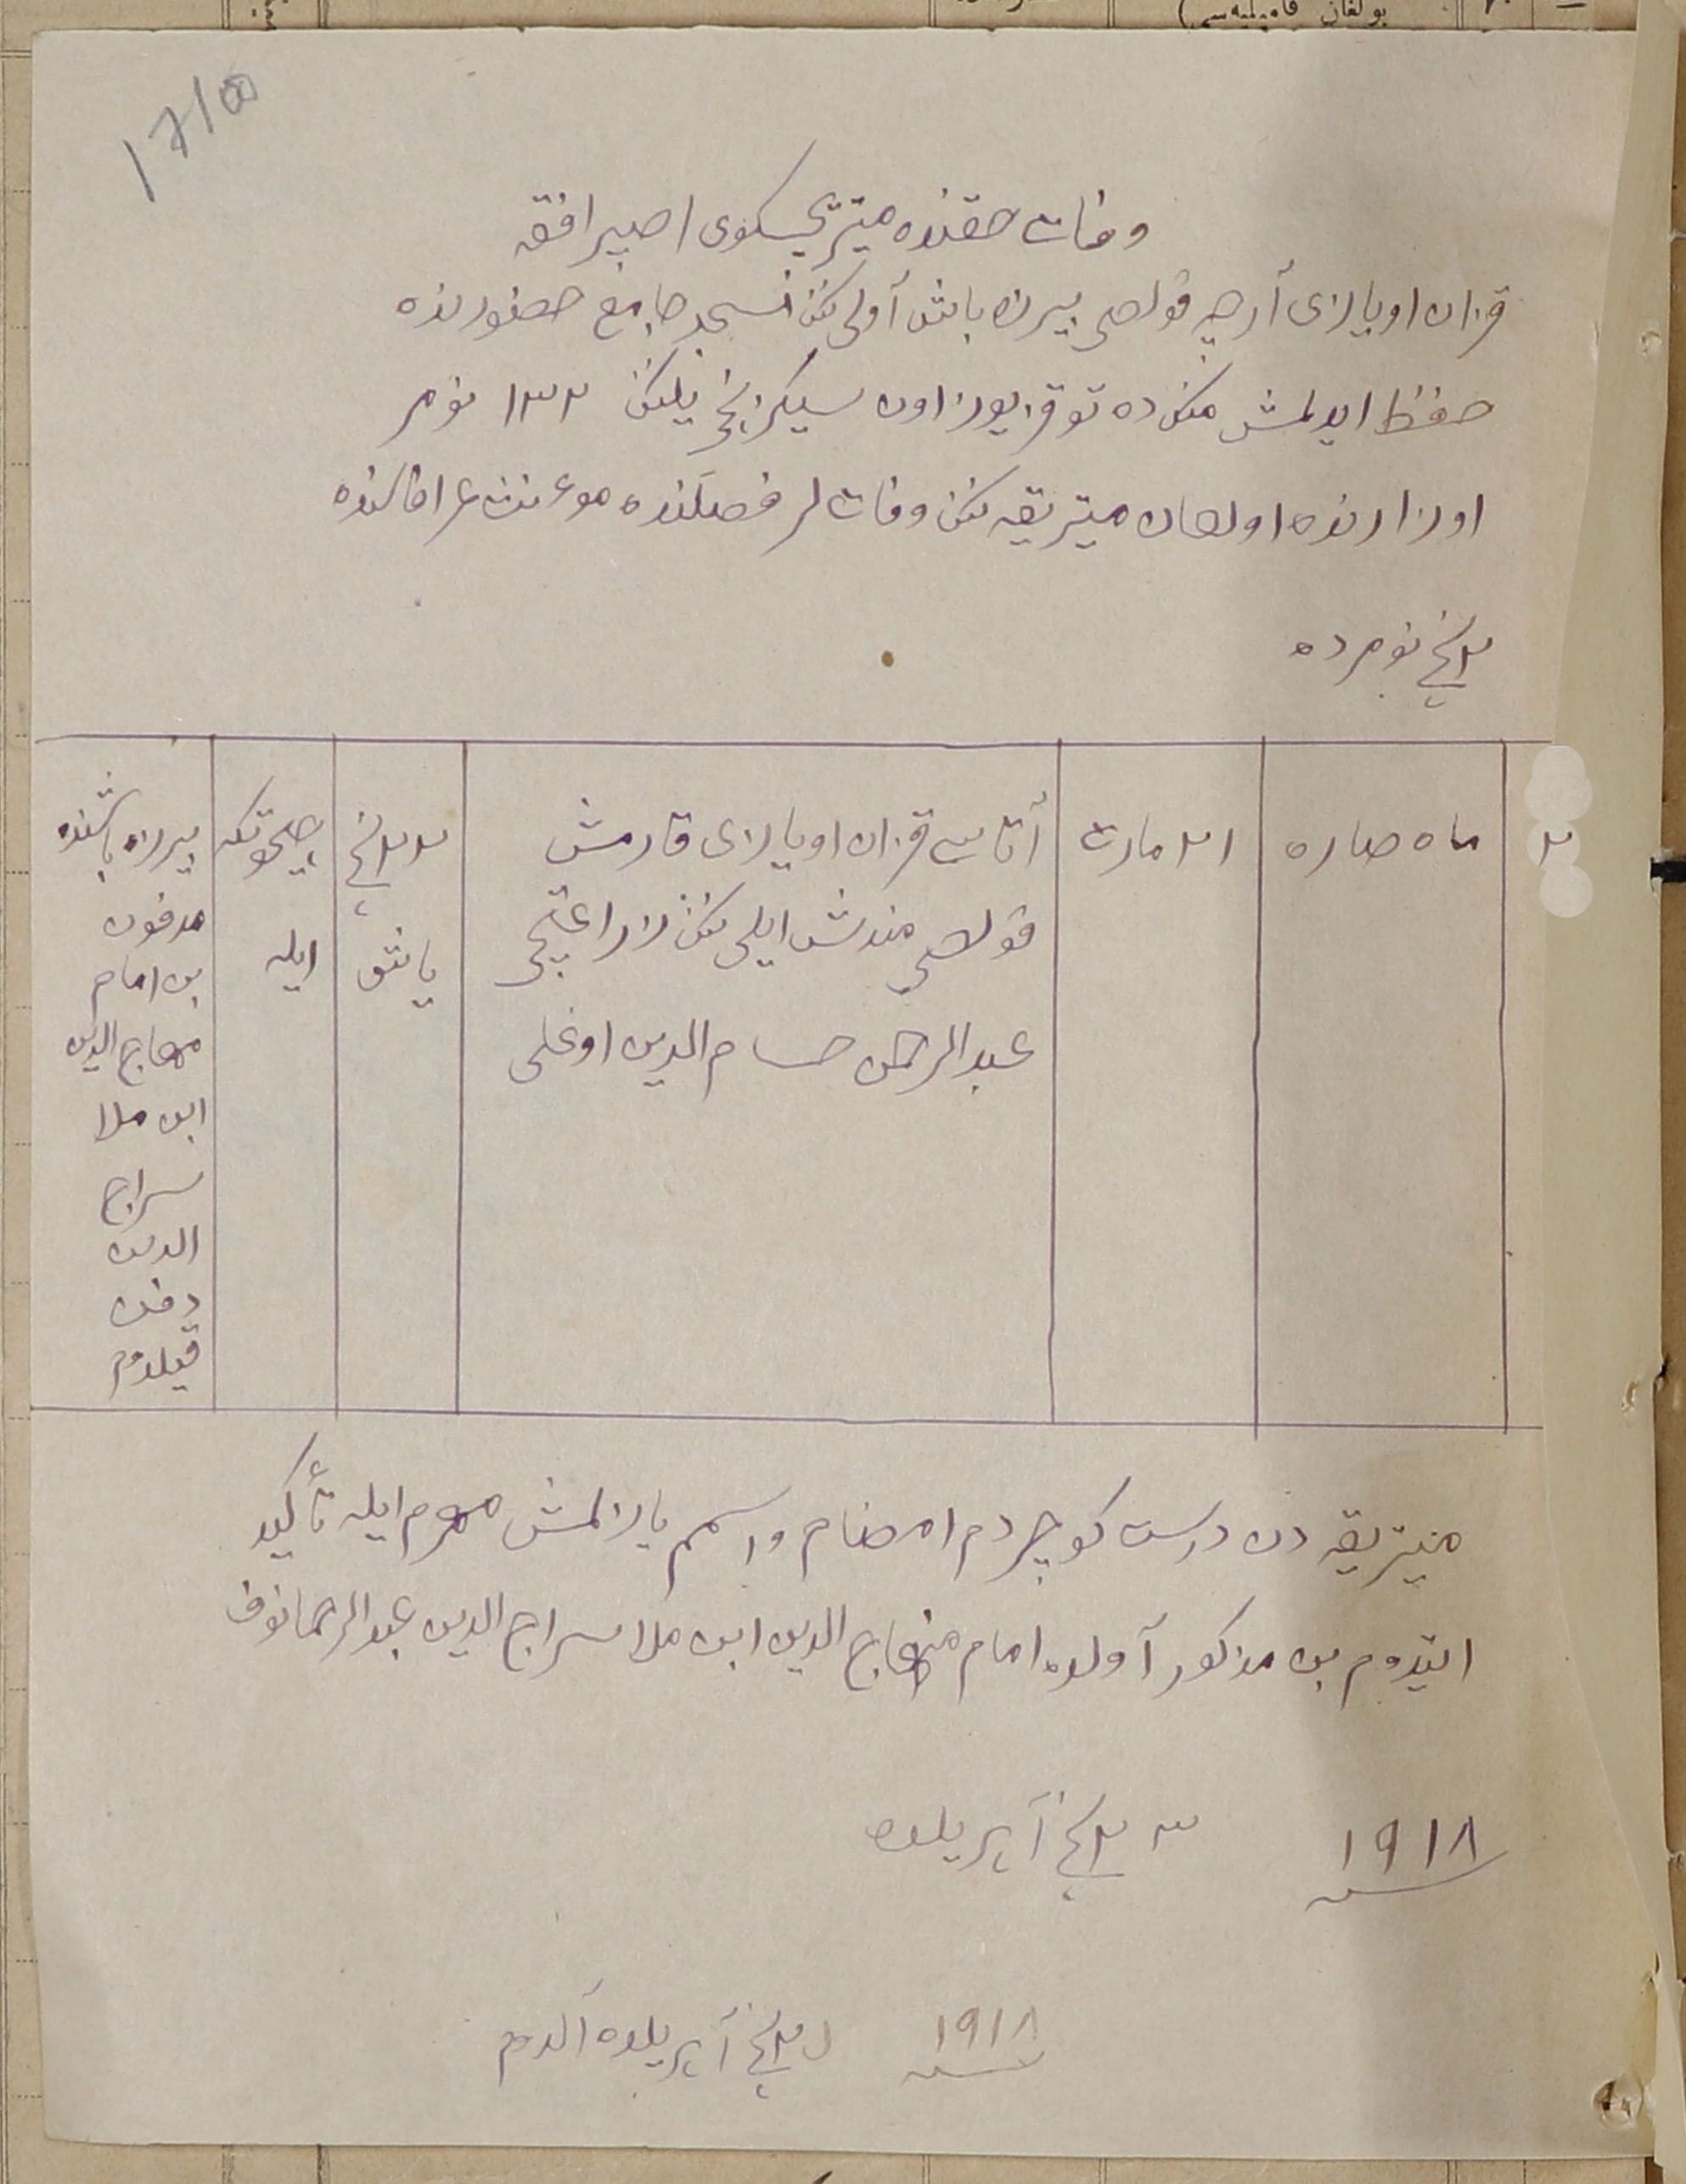 وفات حقنده میتریچسکوی اصپرافقه
قزان اویازی آرچه ولصی بیرزه باش آولی ننك مسجد جامع حضورنده
حفظ ایدلمش منك ده توقز یوز اون سیکزنچی یلنك ١٣٢ نومر
اوزارنده اولغان میتریقه ننك وفات لر فصلنده موءنث عرافاسنده
٢ نچی نومرده
٢
ماه صاره
٢١ مارت
آتاسی قزان اویازی قارمش
ولصی مندش ایلی ننك زاراعتچی
عبدالرحمن حسام الدین اوغلی
٢٢ نچی
یاش
چخوتکه
ایله
بیرزه باشنده
مدفون
بن امام
منهاج الدین
ابن ملا
سراج
الدین
دفن
قیلدم
میتریقه دن درست کوچردم امضام و اسمم یازلمش مهرم ایله تأکید
ایتدوم بن مذکور آولده امام منهاج الدین ابن ملا سراج الدین عبدالرحمانوف
١٩١٨ سنه
٣ نچی آپریلده
١٩١٨ سنه
نچی آپریلده آلدم